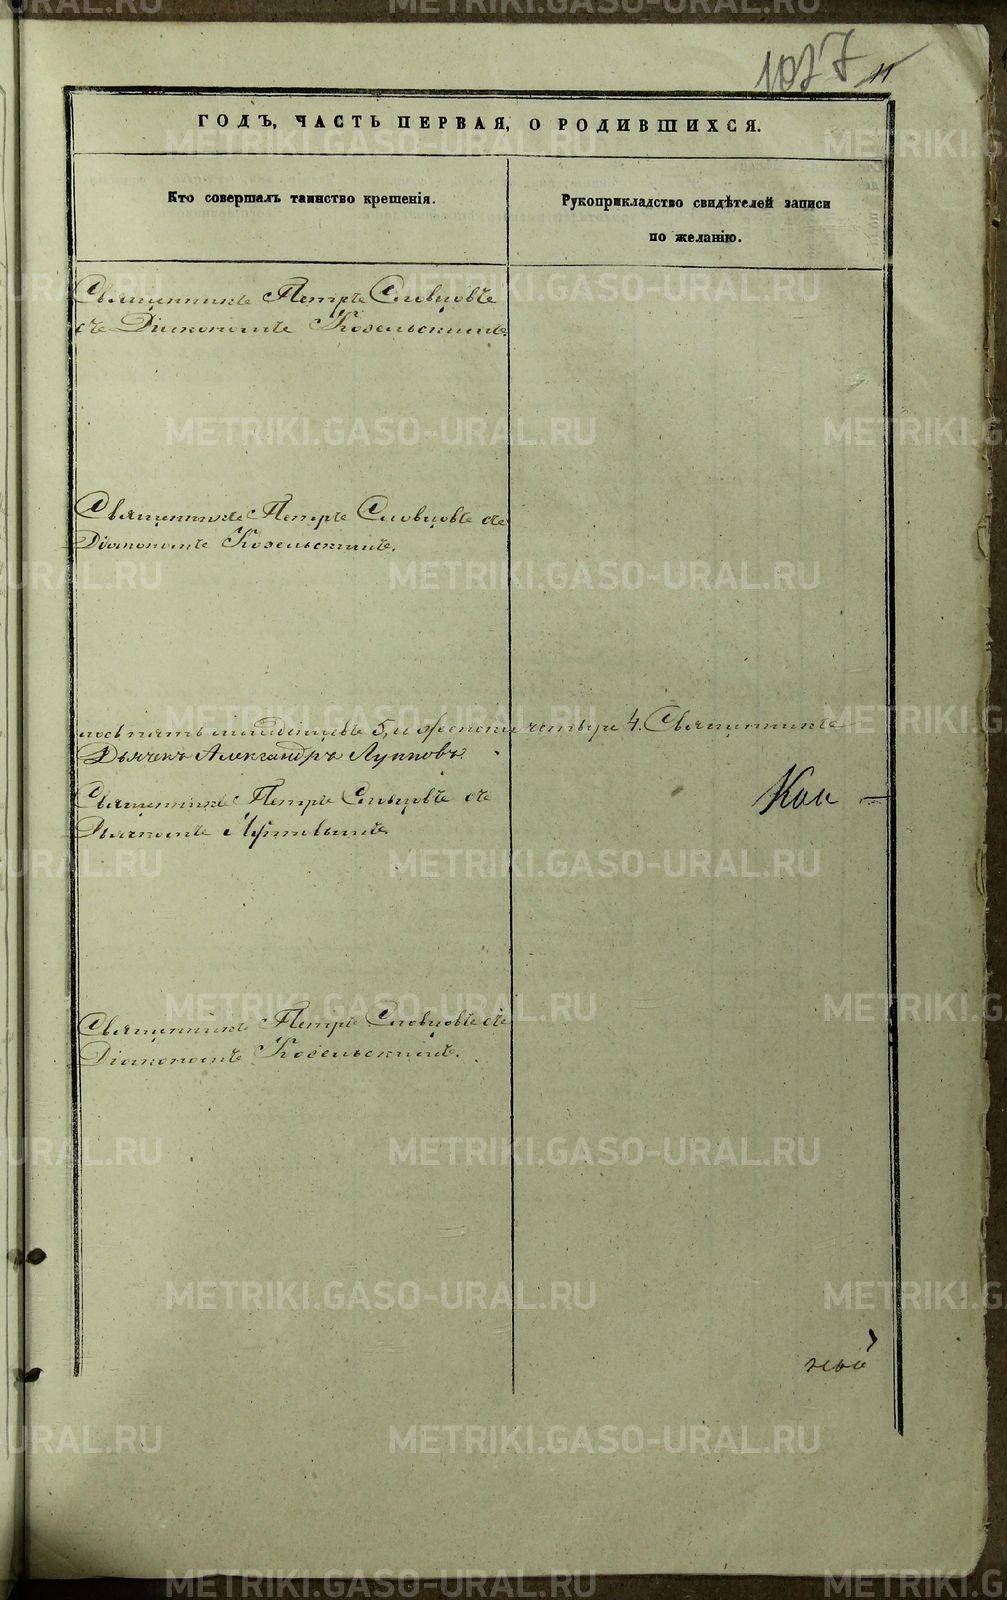 1077 11
ГОДЪ, ЧАСТЬ ПЕРВАЯ, О РОДИВШИХСЯ.
Кто совершалъ таинство крещенія.
Рукоприкладство свидѣтелей записи
по желанію.
Священникъ Петръ Словцовъ
съ Діакономъ Козельскимъ.
Священникъ Петръ Словцовъ съ
Діакономъ Козельскимъ.
пять младенцевъ 5, и женска четыре 4. Священникъ
Дьячекъ Александръ Лупповъ.
Священникъ Петръ Словцовъ съ
Дьячкомъ Лупповымъ.
Священникъ Петръ Словцовъ съ
Діакономъ Козельскимъ.
METRIKI.GASO-URAL.RU